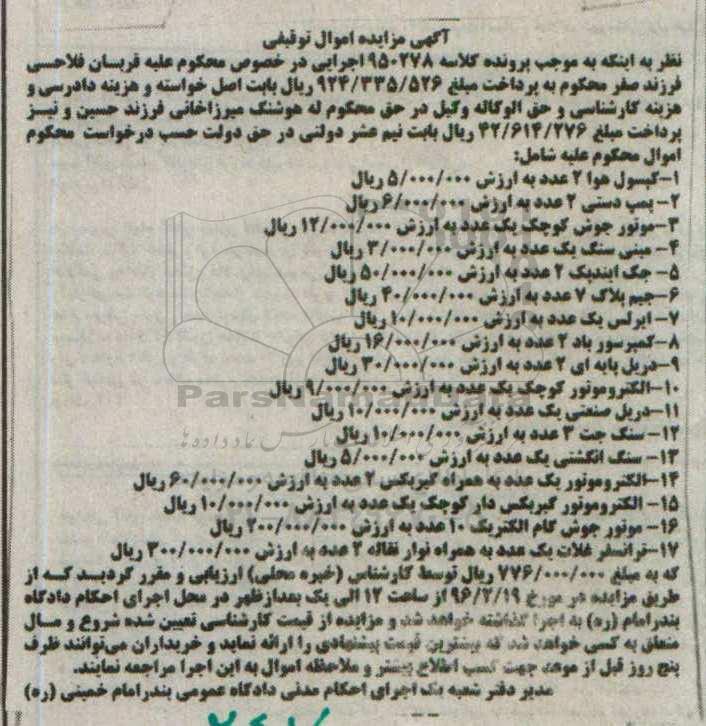 آگهی مزایده اموال توقیفی
نظر به اینکه به موجب پرونده کلاسه ۹۵۰۲۷۸ اجرایی در خصوص محکوم علیه قربان فلاحسی
فرزند صفر محکوم به پرداخت مبلغ ۹۲۴/۳۳۵/۵۲۶ ریال بابت اصل خواسته و هزینه دادرسی و
هزینه کارشناسی و حق الوکاله وکیل در حق محکوم له هوشنگ میرزاخانی فرزند حسین و نیز
پرداخت مبلغ ۴۲/۶۱۴/۲۷۶ ریال بابت نیم عشر دولتی در حق دولت حسب درخواست محکوم
اموال محکوم علیه شامل:
۱-کپسول هوا ۲ عدد به ارزش ۵/۰۰۰/۰۰۰ ریال
۲- پمپ دستی ۲ عدد به ارزش ۶/۰۰۰/۰۰۰ ریال
۳-موتور جوش کوچک یک عدد به ارزش ۱۲/۰۰۰/۰۰۰ ریال
۴- مینی سنگ یک عدد به ارزش ۳/۰۰۰/۰۰۰ ریال
۵- جک ایندیک ۲ عدد به ارزش ۵۰/۰۰۰/۰۰۰ ریال
۶-جیم بلاک ۷ عدد به ارزش ۴۰/۰۰۰/۰۰۰ ریال
۷- ایرلس یک عدد به ارزش ۱۰/۰۰۰/۰۰۰ ریال
۸-کمپرسور باد ۲ عدد به ارزش ۱۶/۰۰۰/۰۰۰ ریال
۹-دریل پایه ای ۲ عدد به ارزش ۳۰/۰۰۰/۰۰۰ ریال
۱۰-الکتروموتور کوچک یک عدد به ارزش ۹/۰۰۰/۰۰۰ ریال
ParsNamadData
۱۱-دریل صنعتی یک عدد به ارزش ۱۰/۰۰۰/۰۰۰ ریال
۱۲- سنگ جت ۳ عدد به ارزش ۱۰/۰۰۰/۰۰۰ ریال
۱۳- سنگ انگشتی یک عدد به ارزش ۵/۰۰۰/۰۰۰ ریال
۱۴-الکتروموتور یک عدد به همراه گیربکس ۲ عدد به ارزش ۶۰/۰۰۰/۰۰۰ ریال
۱۵- الکتروموتور گیربکس دار کوچک یک عدد به ارزش ۱۰/۰۰۰/۰۰۰ ریال
۱۶- موتور جوش گام الکتریک ۱۰ عدد به ارزش ۲۰۰/۰۰۰/۰۰۰ ریال
۱۷-ترانسفر غلات یک عدد به همراه نوار نقاله ۲ عدد به ارزش ۳۰۰/۰۰۰/۰۰۰ ریال
که به مبلغ ۷۷۶/۰۰۰/۰۰۰ ریال توسط کارشناس (خبره محلی) ارزیابی و مقرر گردید که از
طریق مزایده در مورخ ۹۶/۲/۱۹ از ساعت ۱۲ الی یک بعدازظهر در محل اجرای احکام دادگاه
بندرامام (ره) به اجرا گذاشته خواهد شد و مزایده از قیمت کارشناسی تعیین شده شروع و مال
متعلق به کسی خواهد شد که بیشترین قیمت پیشنهادی را ارائه نماید و خریداران می‌توانند ظرف
پنج روز قبل از موعد جهت کسب اطلاع بیشتر و ملاحظه اموال به این اجرا مراجعه نمایند.
مدیر دفتر شعبه یک اجرای احکام مدنی دادگاه عمومی بندرامام خمینی (ره)